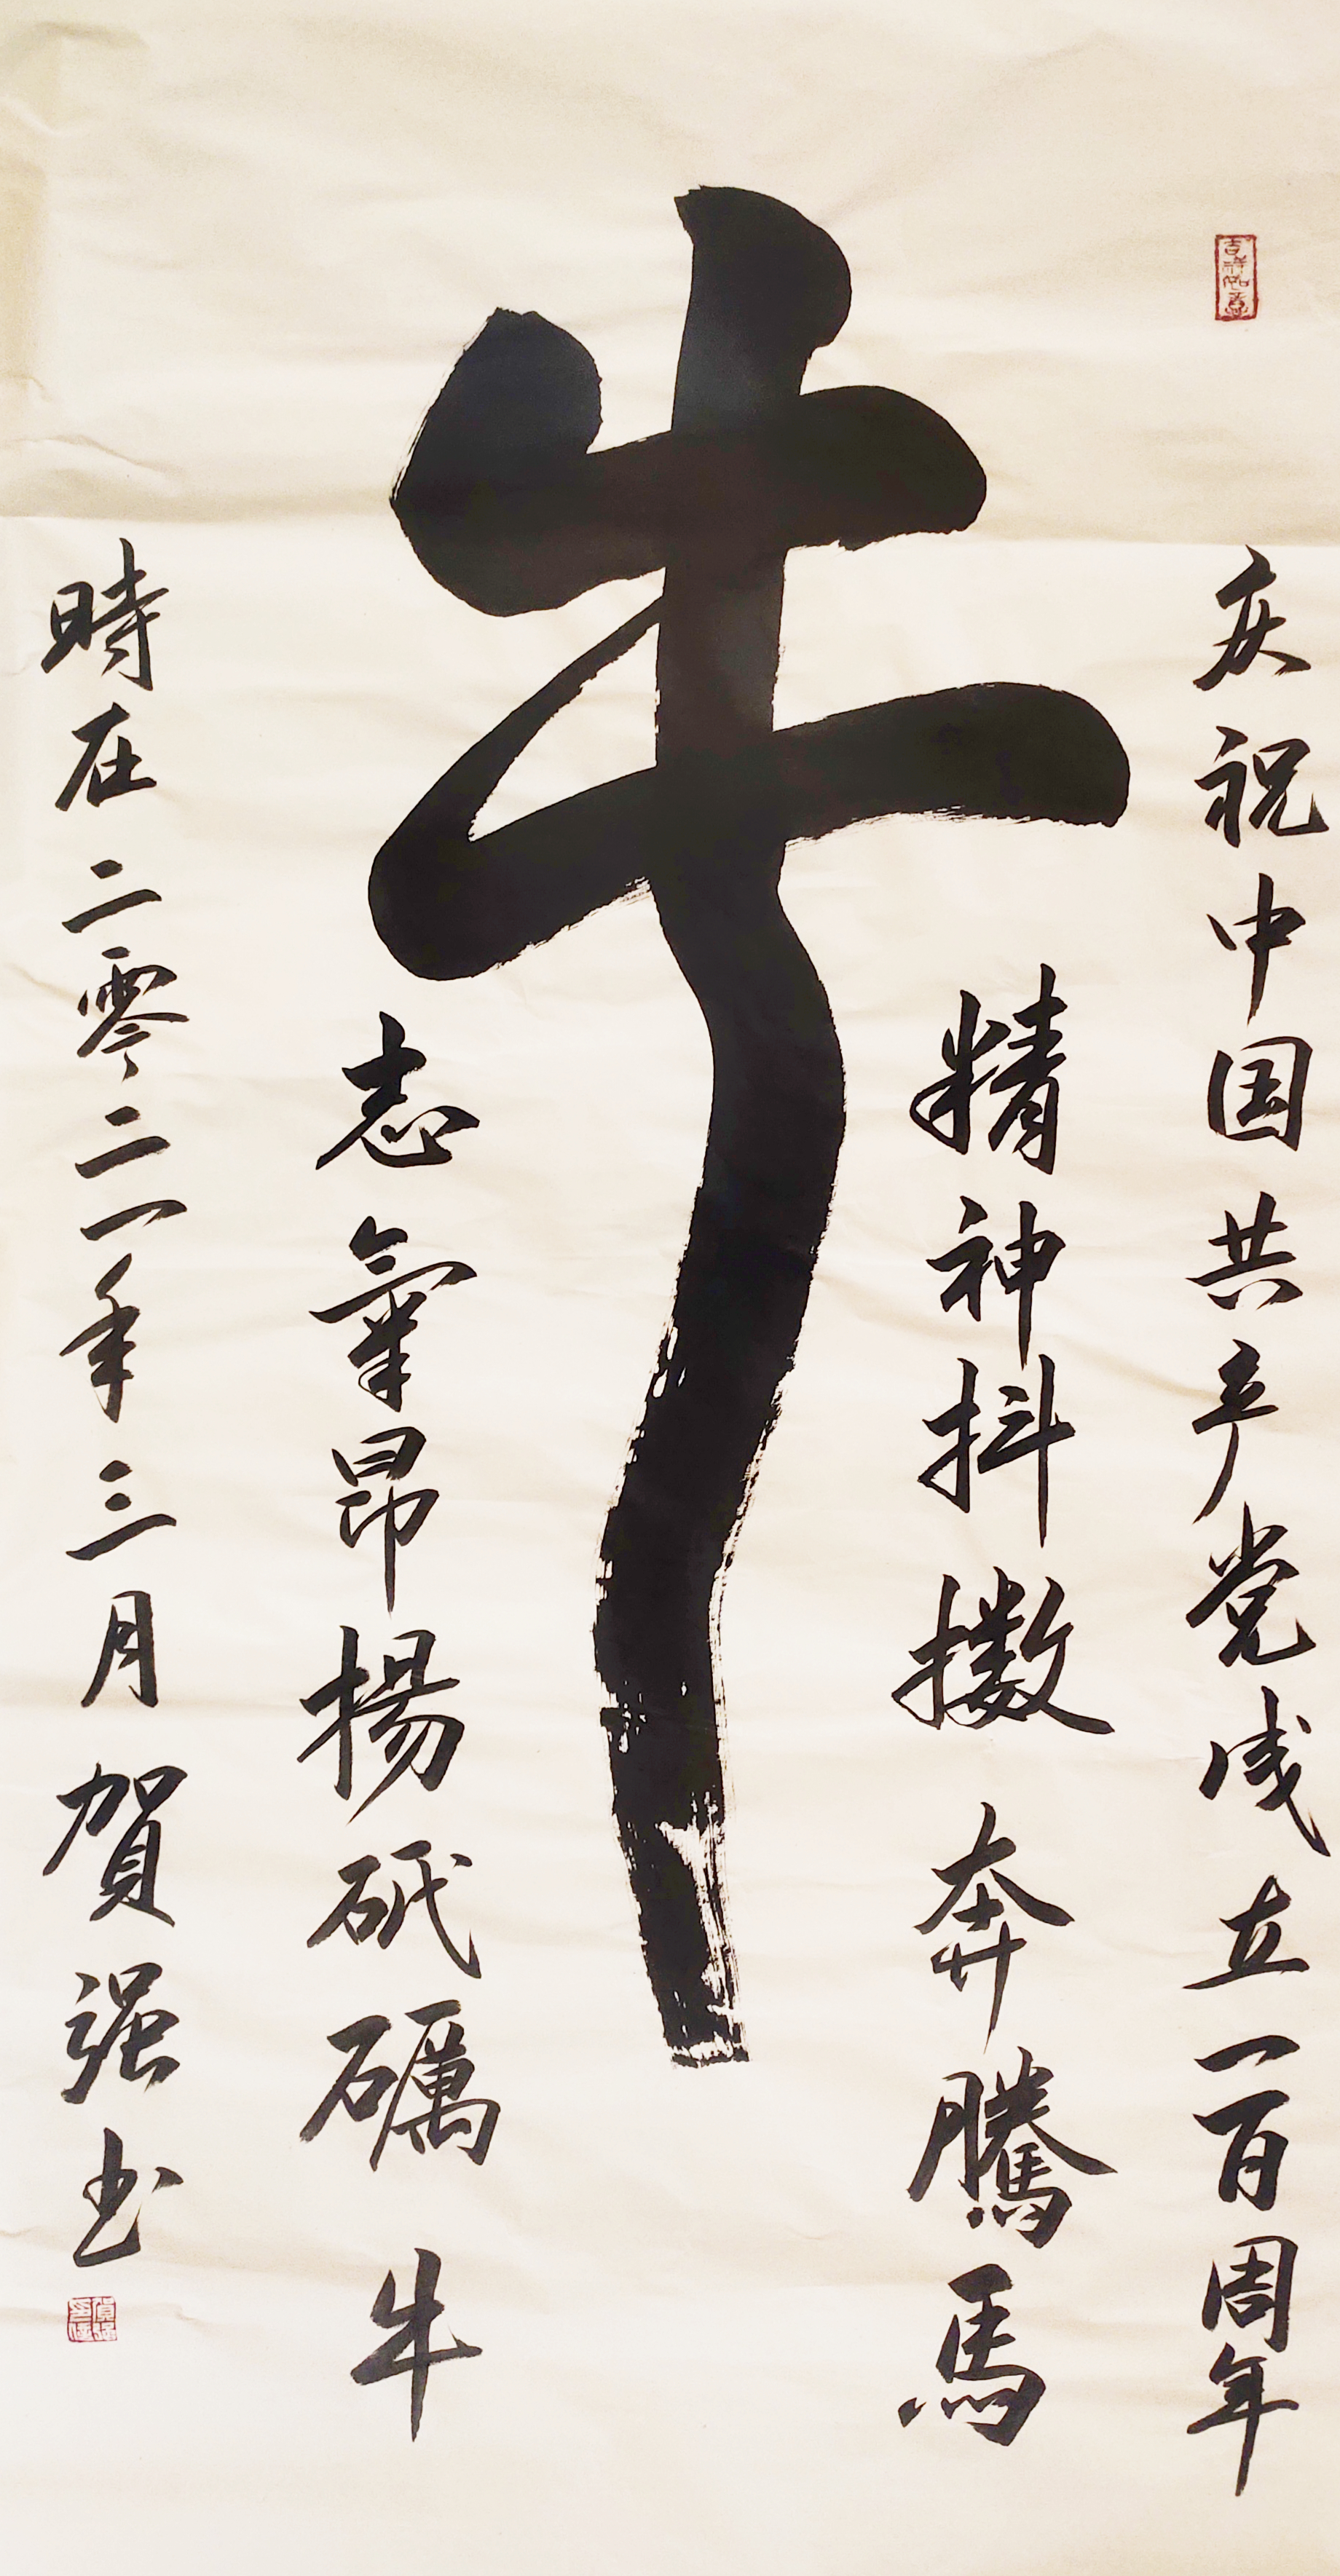 吉祥如意
庆祝中国共产党成立一百周年
精神抖擞奔騰馬
牛
志氣昂揚砥礪牛
時在二零二一年三月賀强书